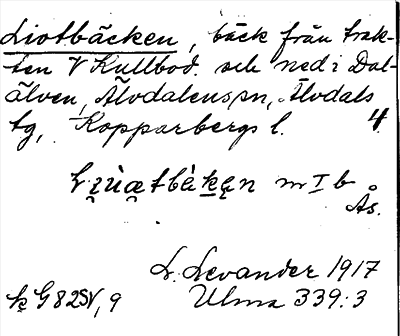 Liotbäcken, bäck från trak-
ten V Kullbod. och ned i Dal-
älven, Älvdalens sn, Älvdals
tg, Kopparbergs l. 4
m I b
Ås.
L. Levander 1917
k G82SV, 9 Ulma 339:3